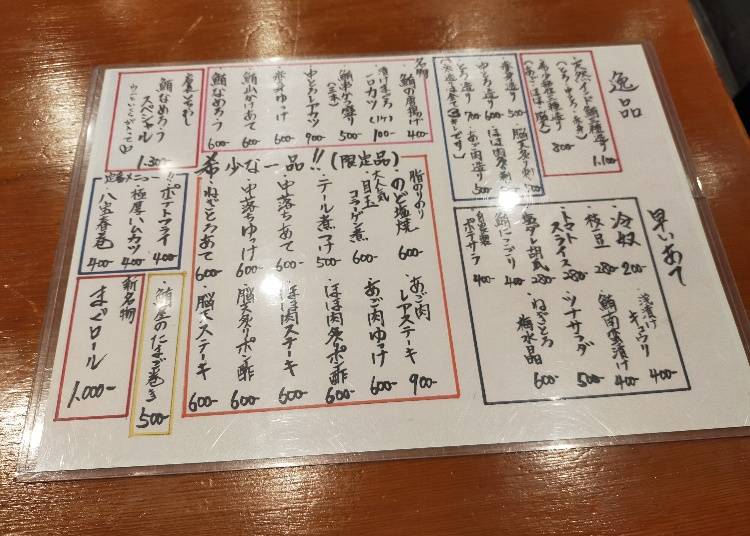 逸品
天然インド鮪三種造り
(とろ・中とろ・赤身)
1.100-
希少部位三種造り
(あご・ほほ・脳天)
800-
赤身造り 500-
中とろ造り 600-
とろ造り 700-
脳天炙り刺 500-
ほほ肉炙り刺 500-
あご肉造り 500-
名物
鮪の唐揚げ 400-
漬けまぐろ
一口カツ(1ケ) 100-
鮪串かつ盛り
(三本) 500-
中とろレアカツ 900-
赤身ゆっけ 600-
鮪山かけあて 600-
鮪なめろう 600-
鮪なめろう
スペシャル
1.300-
早いあて
冷奴 200-
枝豆 280-
トマト
スライス 280-
塩ダレ胡瓜 280-
鮪にこごり 400-
自家製
ポテサラ 400-
浅漬け
キュウリ 400-
鮪南蛮漬け 400-
ツナサラダ 500-
ねぎとろ
梅水晶 600-
希少な一品!!(限定品)
脂のりのり
のど塩焼 600-
大人気
目玉
コラーゲン煮 600-
テール煮つけ 500-
中落ちあて 600-
中落ちゆっけ 600-
ねぎとろあて 600-
あご肉
レアステーキ 900-
あご肉ゆっけ 600-
ほほ肉炙りポン酢 600-
ほほ肉ステーキ 600-
脳天炙りポン酢 600-
脳天ステーキ 600-
定番メニュー
ポテトフライ 400-
極厚ハムカツ 400-
八宝春巻 400-
鮪屋のたまご巻き 500-
新名物
まぐロール
1.000-